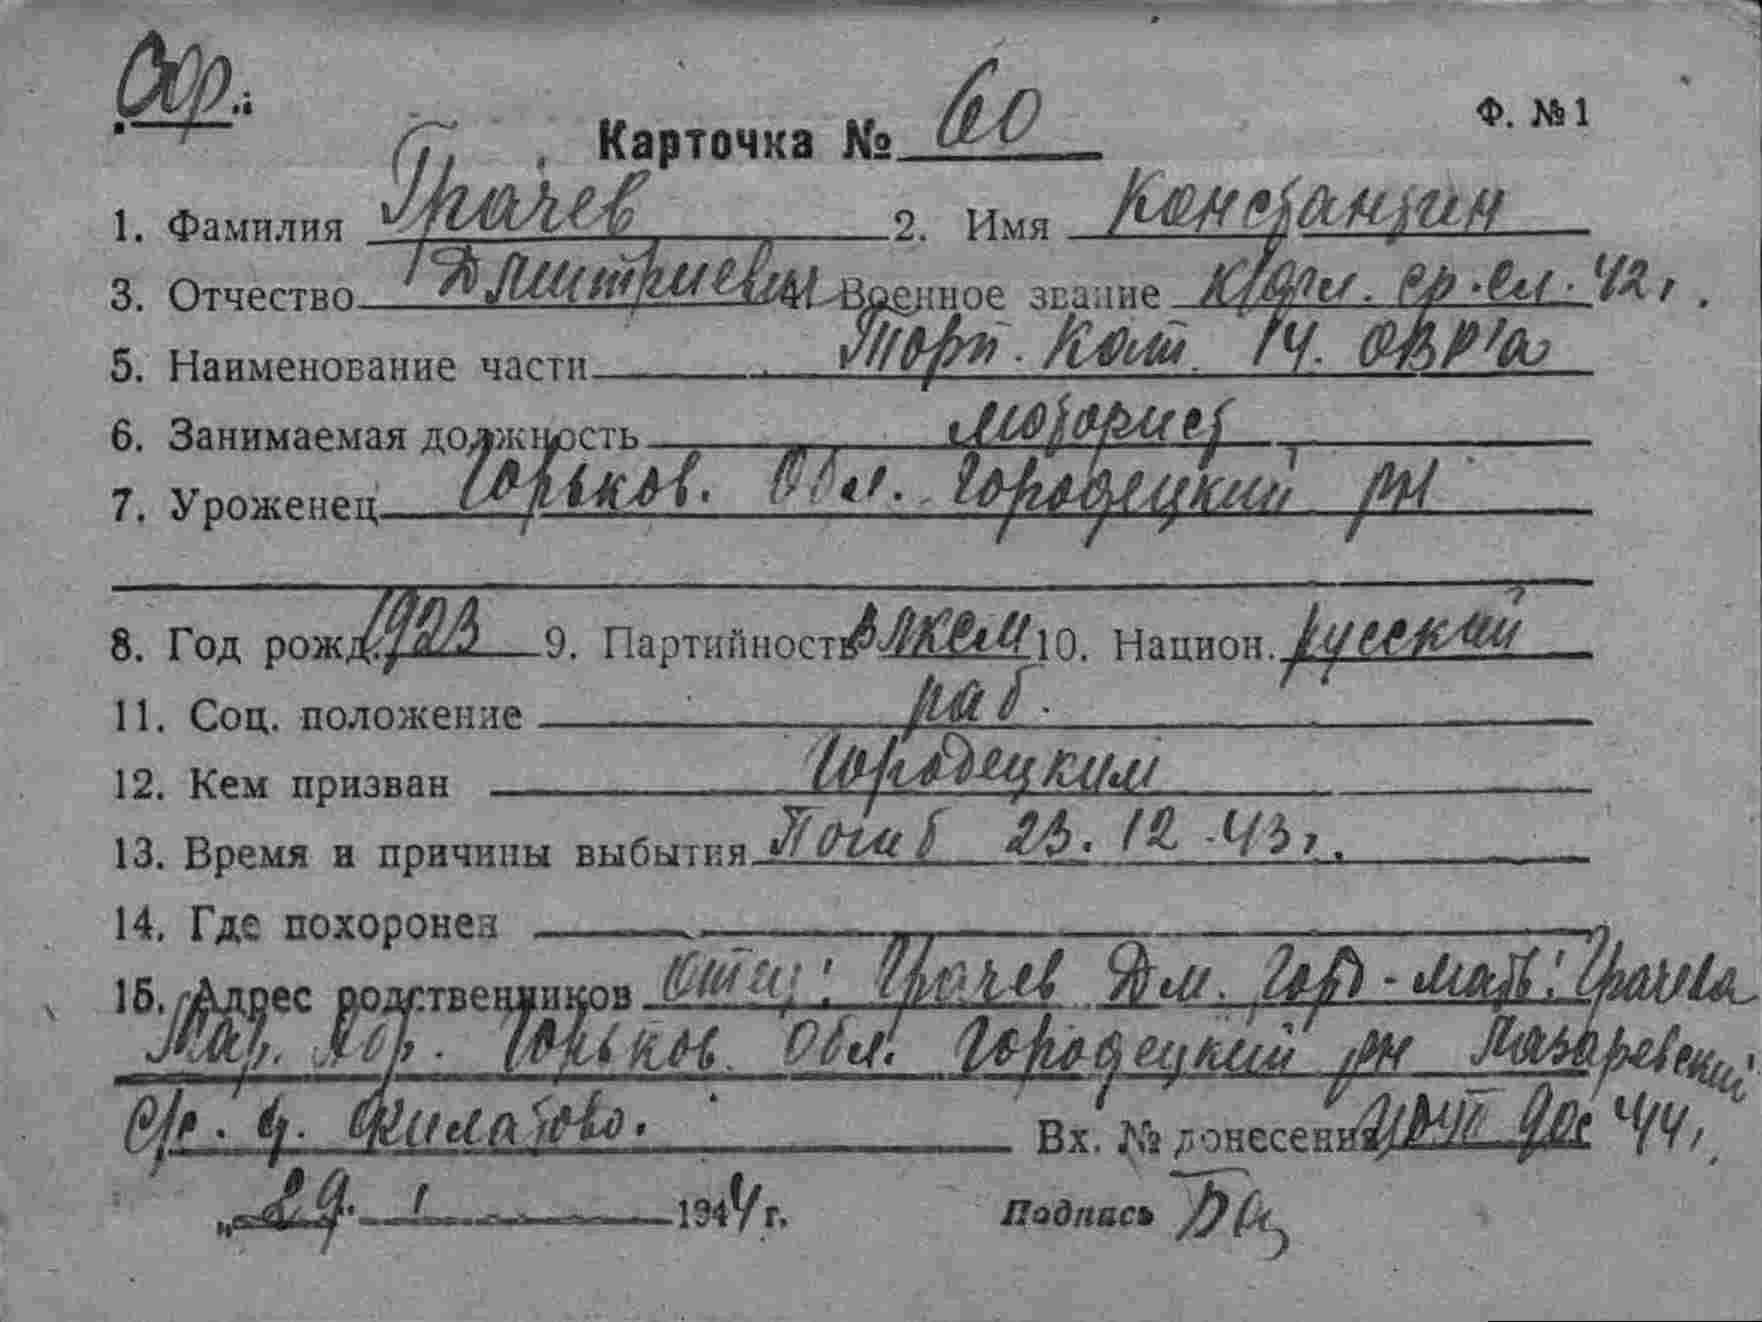 Ф. № 1
Карточка № 60
1. Фамилия Грачев 2. Имя Константин
3. Отчество Дмитриевич 4. Военное звание к/фл. ср. сл. 42 г.
5. Наименование части Торп. Кат. ОВР'а
6. Занимаемая должность моторист
7. Уроженец Горьков. Обл. Городецкий рн
8. Год рожд. 1923 9. Партийность ВЛКСМ 10. Национ. русский
11. Соц. положение раб.
12. Кем призван Городецким
13. Время и причины выбытия Погиб 23.12.43 г.
14. Где похоронен
15. Адрес родственников отец: Грачев Дм. - мать: Грачева
Мар. Горьков. Обл. Городецкий рн Лазаревский
с/с. д. Филатово. Вх. № донесения 44 г.
„29. 1 1944 г. Подпись